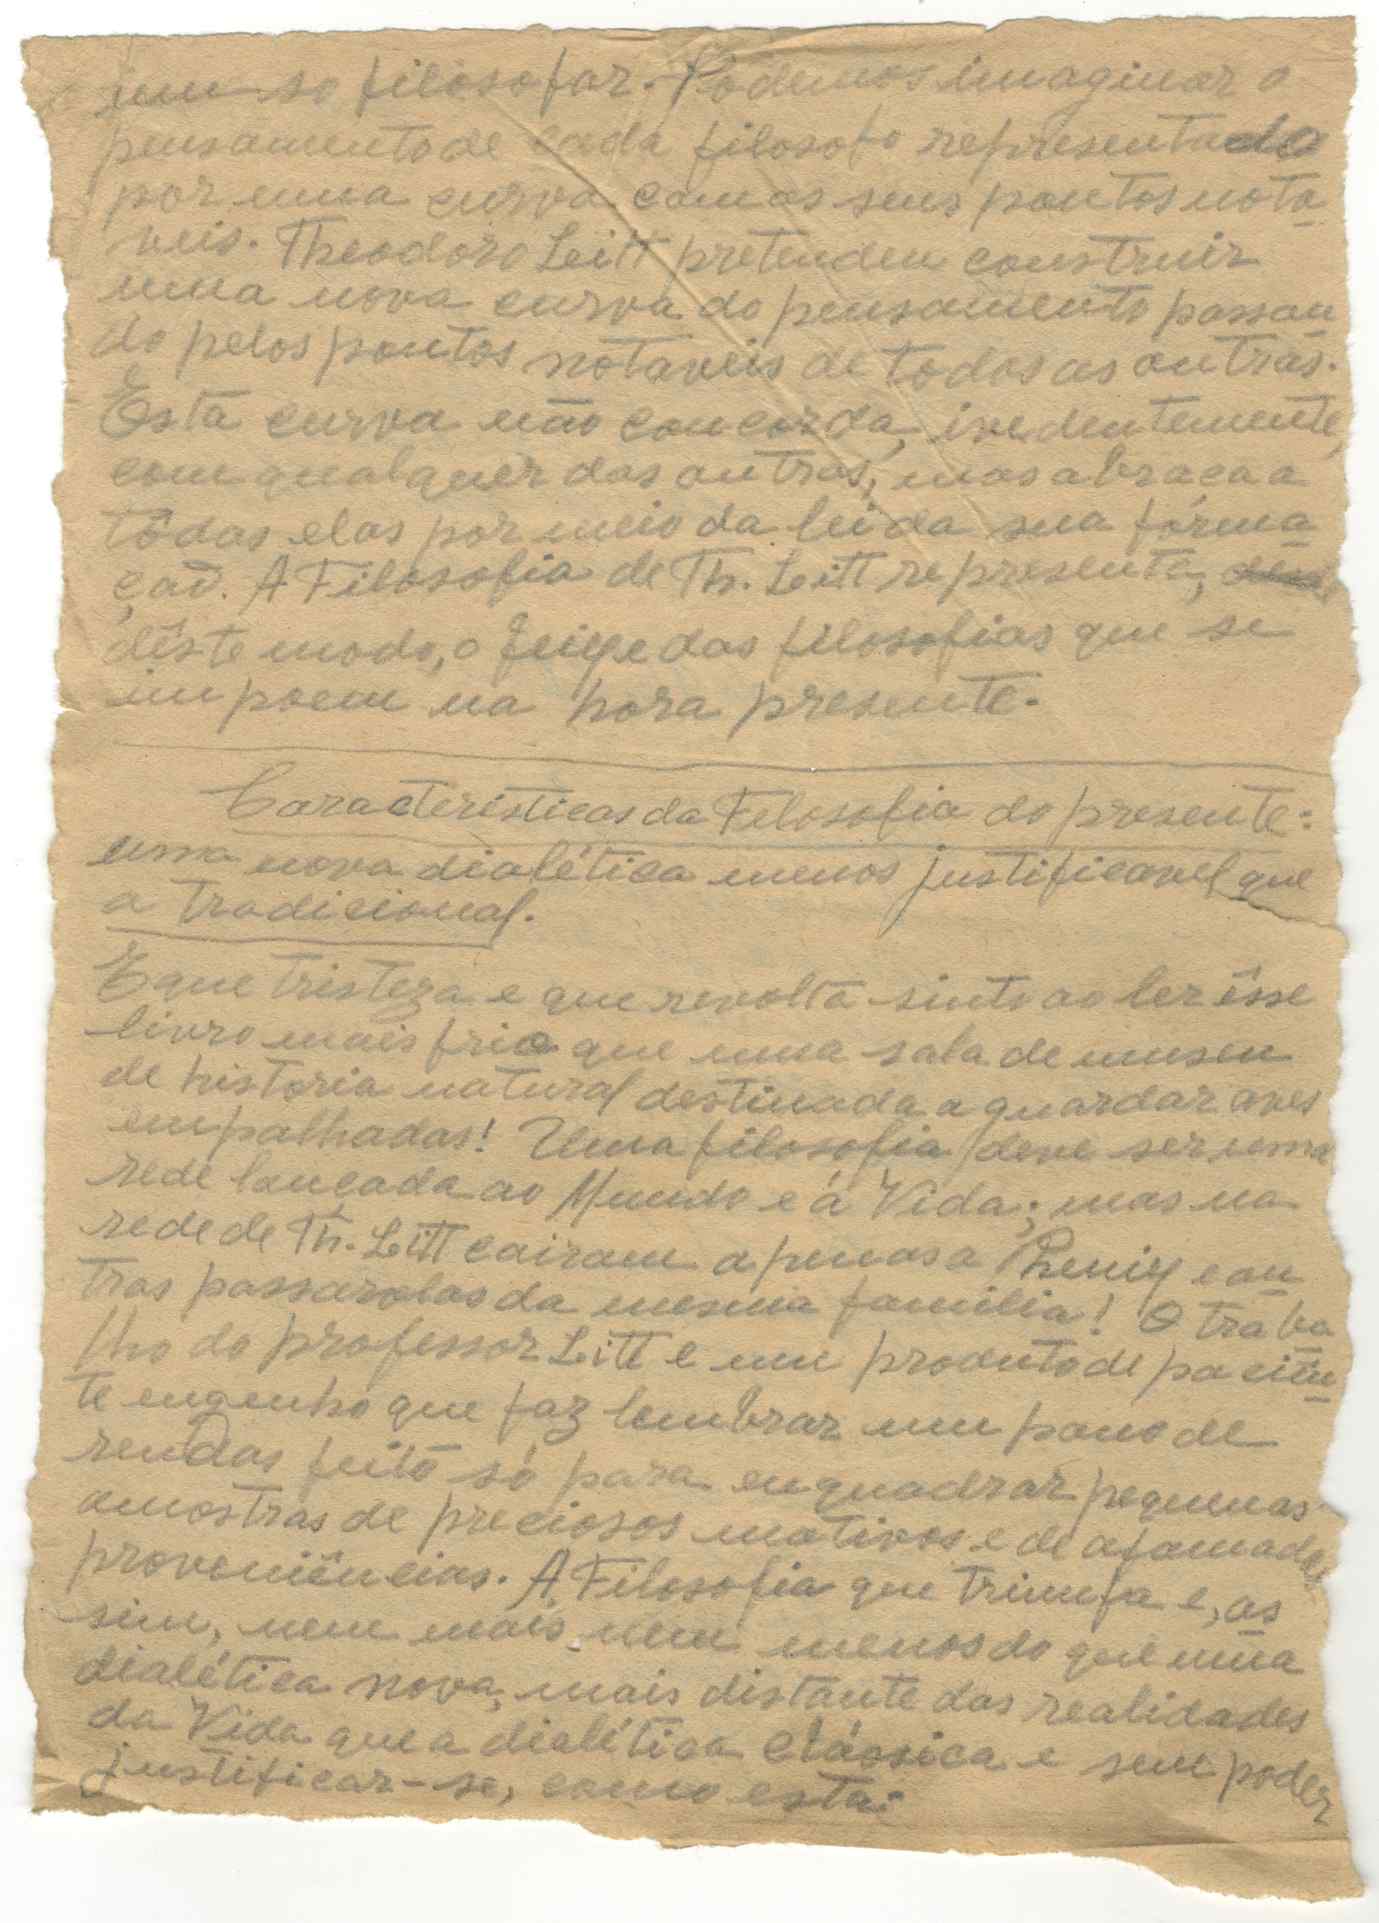 num só filosofar. Podemos imaginar o
pensamento de cada filosofo representado
por uma curva com os seus pontos nota
veis. Theodoro Litt pretendeu construir
uma nova curva do pensamento passan
do pelos pontos notaveis de todas as outras.
Esta curva não concorda, ividentemente,
com qualquer das outras, mas abraça a
tôdas elas por meio da lei da sua fórma
ção. A Filosofia de Th. Litt representa,
dêste modo, o feixe das filosofias que se
impoem na hora presente.
Caracteristicas da Filosofia do presente:
uma nova dialética menos justificavel que
a tradicional.
E que tristeza e que revolta sinto ao ler êsse
livro mais frio que uma sala de museu
de historia natural destinada a guardar aves
empalhadas! Uma filosofia deve ser uma
rede lançada ao Mundo e á Vida; mas na
rede de Th. Litt cairam apenas a Phenix e ou
tras passarolas da mesma familia! O traba
lho do professor Litt e um produto de paciên
te engenho que faz lembrar um pano de
rendas feito só para enquadrar pequenas
amostras de preciosos motivos e de afamadas
proveniências. A Filosofia que triunfa e, as
sim, nem mais nem menos do que uma
dialética nova, mais distante das realidades
da Vida que a dialética clássica e sem poder
justificar-se, como esta: